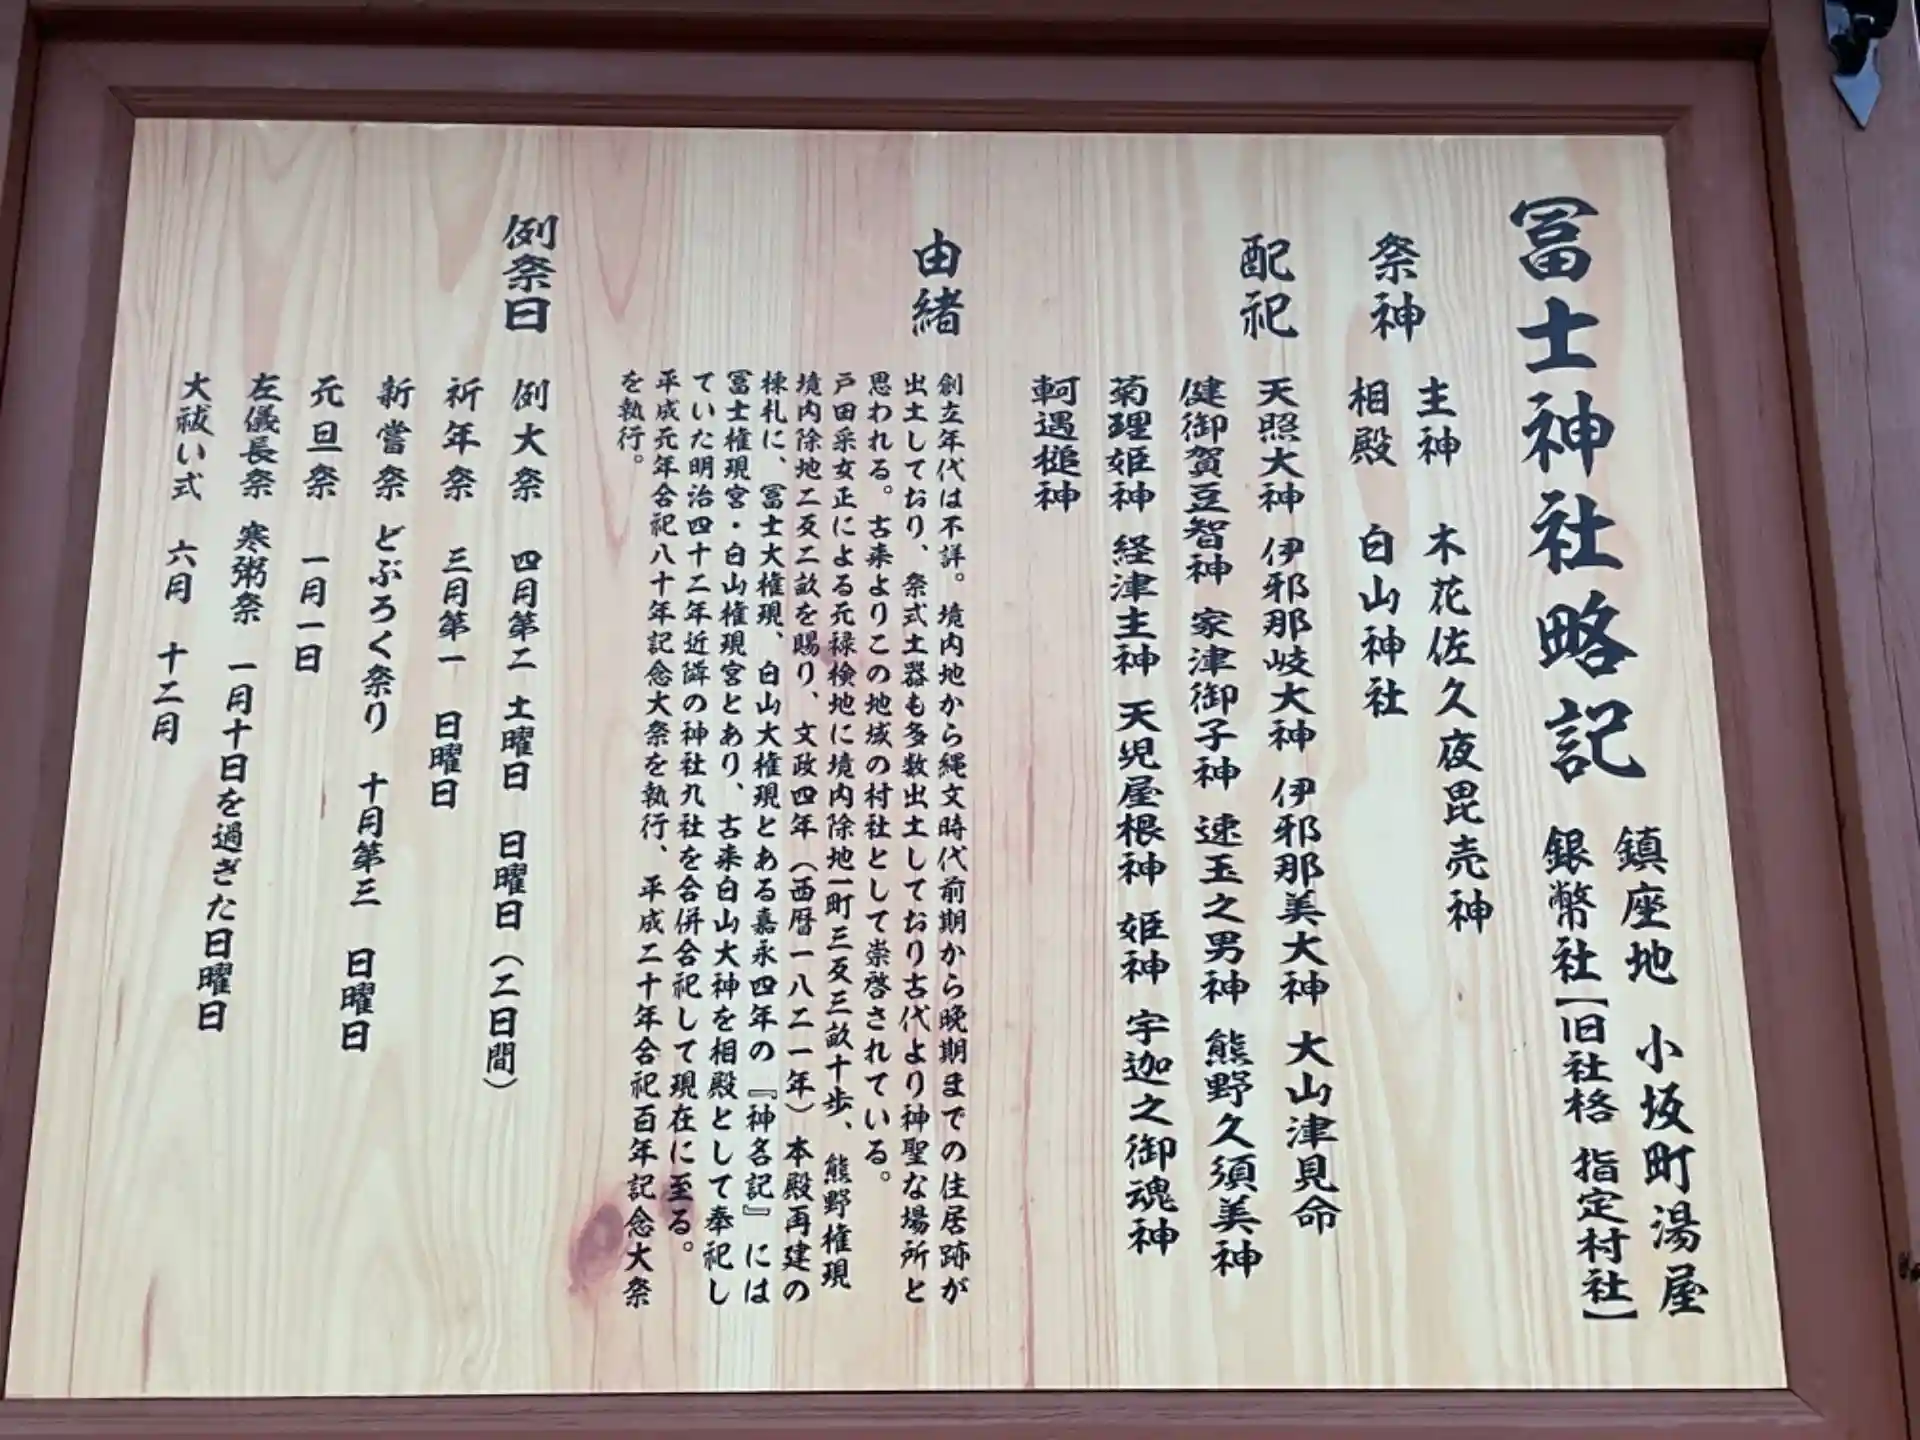 冨士神社略記
鎮座地 小坂町湯屋
銀幣社【旧社格 指定村社】
祭神
主神 木花佐久夜毘売神
相殿 白山神社
配祀
天照大神 伊邪那岐大神 伊邪那美大神 大山津見命
健御賀豆智神 家津御子神 速玉之男神 熊野久須美神
菊理姫神 経津主神 天児屋根神 姫神 宇迦之御魂神
軻遇槌神
由緒
創立年代は不詳。境内地から縄文時代前期から晩期までの住居跡が
出土しており、祭式土器も多数出土しており古代より神聖な場所と
思われる。古来よりこの地域の村社として崇啓されている。
戸田采女正による元禄検地に境内除地一町三反三畝十歩、熊野権現
境内除地二反二畝を賜り、文政四年（西暦一八二一年）本殿再建の
棟札に、冨士大権現、白山大権現とある嘉永四年の『神名記』には
冨士権現宮・白山権現宮とあり、古来白山大神を相殿として奉祀し
ていた明治四十二年近隣の神社九社を合併合祀して現在に至る。
平成元年合祀八十年記念大祭を執行、平成二十年合祀百年記念大祭
を執行。
例祭日
例大祭 四月第二 土曜日 日曜日（二日間）
祈年祭 三月第一 日曜日
新嘗祭 どぶろく祭り 十月第三 日曜日
元旦祭 一月一日
左儀長祭 寒粥祭 一月十日を過ぎた日曜日
大祓い式 六月 十二月